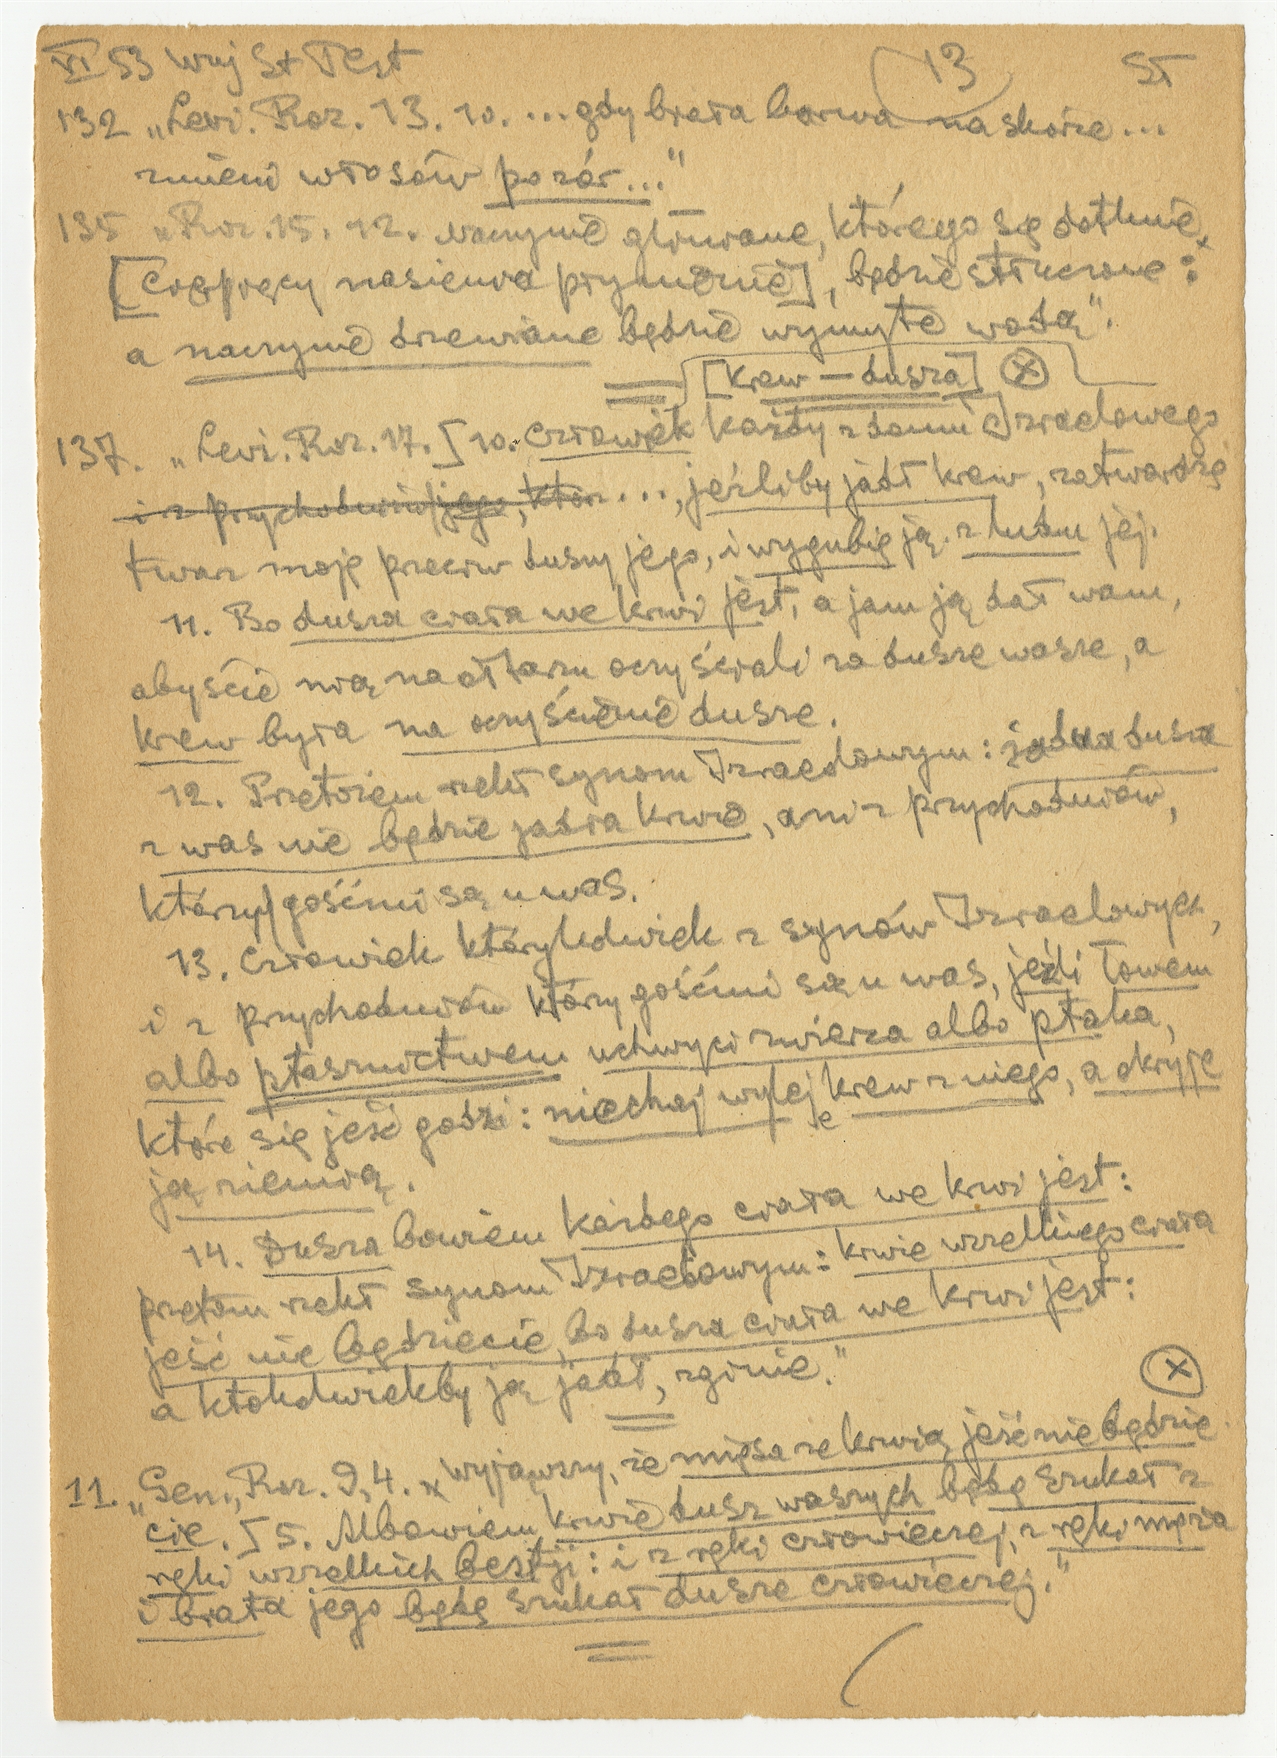 VI 53 Wuj St Test 13 ST
132 „Levi. Roz. 13. 10. ...gdy biała barwa na skórze...
zmieni włosów pozór..."
135 „Roz. 15. 12. Naczynie gliniane, którego się dotknie,
[cierpiący nasienia płynienie], będzie stłuczone:
a naczynie drzewiane będzie wymyte wodą".
[Krew — dusza] ⊗
137. „Levi. Roz. 17. § 10. człowiek każdy z domu Izraelowego
i z przychodniów jego, któr... , jeźliby jadł krew, zatwardzę
twarz moję przeciw duszy jego, i wygubię ją z ludu jej.
11. Bo dusza ciała we krwi jest, a jam ją dał wam,
abyście nią na ołtarzu oczyściali za dusze wasze, a
krew była na oczyścienie dusze.
12. Przetożem rzekł synom Izraelowym: żadna dusza
z was nie będzie jadła krwie, ani z przychodniów,
którzy gośćmi są u was.
13. Człowiek którykolwiek z synów Izraelowych,
i z przychodniów którzy gośćmi są u was, jeźli łowem
albo ptasznictwem uchwyci zwierza albo ptaka,
które się jeść godzi: niechaj wyleje krew z niego, a okryje
ją ziemią.
14. Dusza bowiem każdego ciała we krwi jest:
przetom rzekł synom Izraelowym: krwie wszelkiego ciała
jeść nie będziecie, bo dusza ciała we krwi jest:
a ktokolwiekby ją jadł, zginie."
⊗
11. „Gen., Roz. 9, 4. x wyjąwszy, że mięsa ze krwią jeść nie będzie
cie. § 5. Albowiem krwie dusz waszych będę szukał z
ręki wszelkich bestji: i z ręki człowieczej, z ręki męża
i brata jego będę szukał dusze człowieczej."